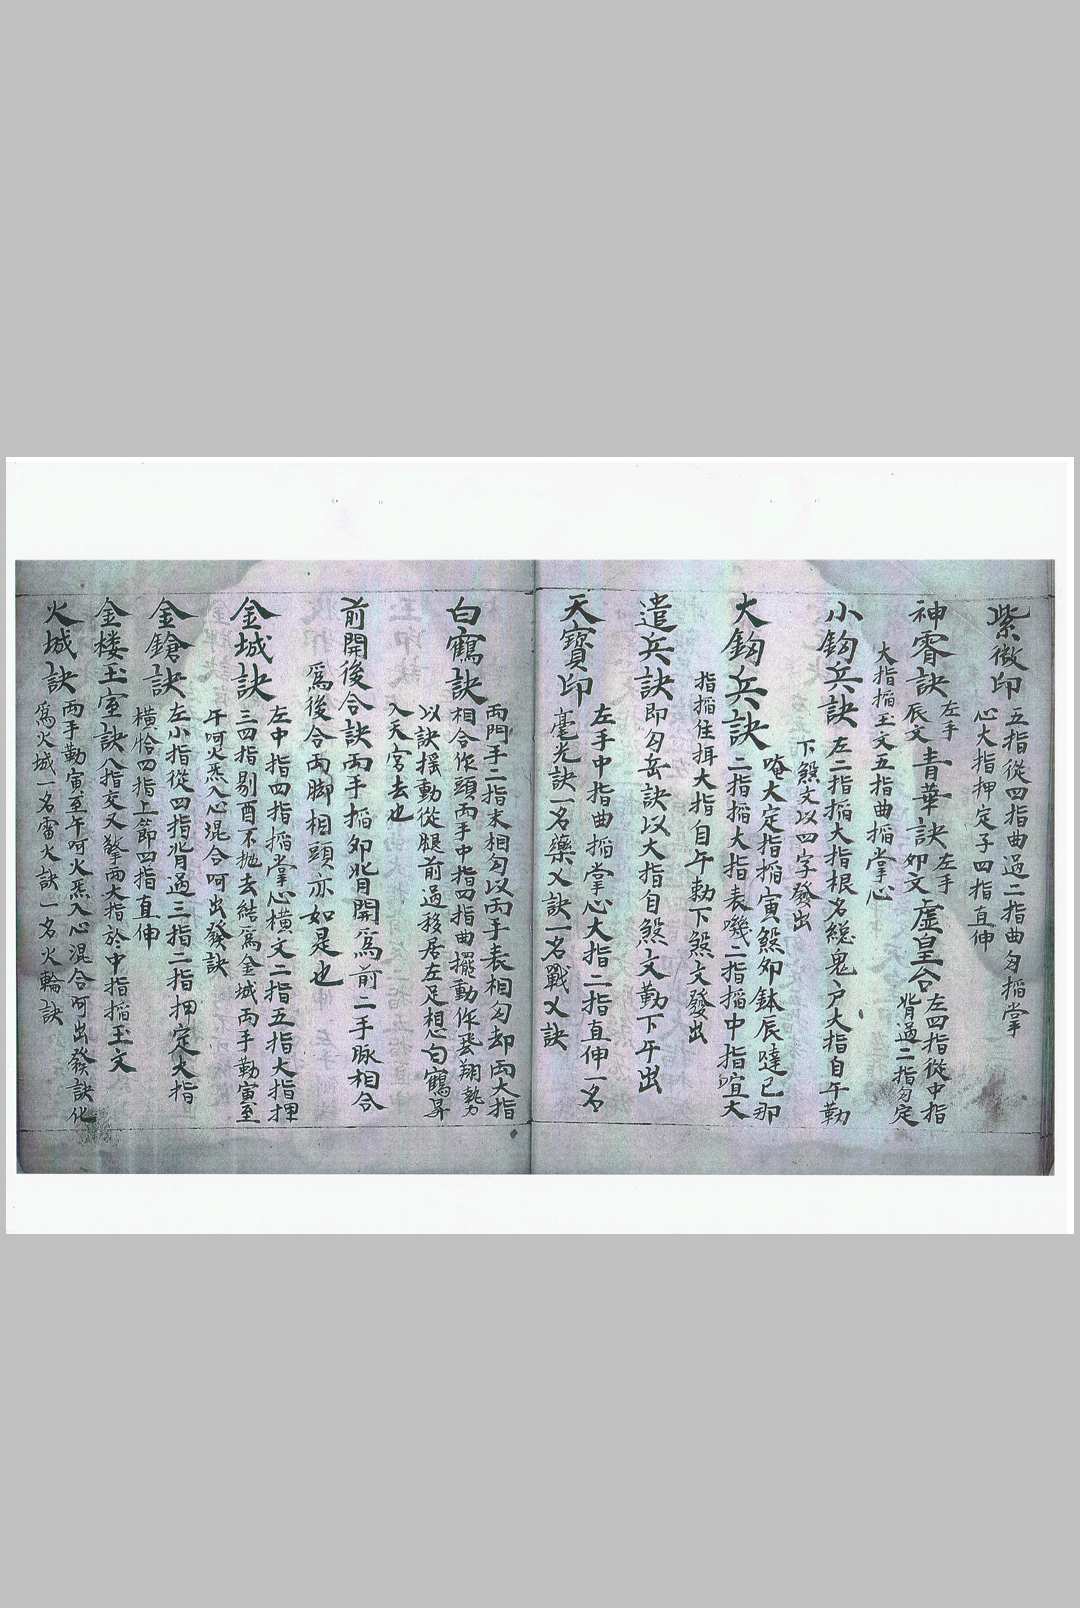 紫微印
五指從四指曲過二指曲勾掐掌
心大指押定子四指直伸
神霄訣 左手辰文 青華訣 左手卯文 虛皇合 左四指從中指背過二指勾定
大指掐玉文五指曲掐掌心
小鈎兵訣 左二指掐大指根名縂鬼户大指自午勒
下煞文以四字發出
大鈎兵訣
唵大定指掐寅煞卯鉢辰噠巳那
二指掐大指表嘰二指掐中指喧大
指掐住揖大指自午勅下煞文發出
遣兵訣 即勾岳訣以大指自煞文勤下午出
天寶印
左手中指曲掐掌心大指二指直伸一名
毫光訣一名藥乂訣一名戰乂訣
白鶴訣
兩門手二指末相勾以兩手表相勾却兩大指
相合作頭兩手中指四指曲擺動作飛翔勢力
以訣搖動從腿前過移居左足想白鶴昇
入天宮去也
前開後合訣 兩手掐卯背開爲前二手脉相合
爲後合兩脚相頭亦如是也
金城訣
左中指四指掐掌心橫文二指五指大指押
三四指剔酉不抛去結爲金城兩手勤寅至
午呵火炁入心混合呵出發訣
金鎗訣
左小指從四指背過三指二指押定大指
橫恰四指上節四指直伸
金楼玉室訣 八指交叉擎兩大指於中指掐玉文
火城訣
兩手勤寅至午呵火炁入心混合呵出發訣化
爲火城一名雷火訣一名火輪訣